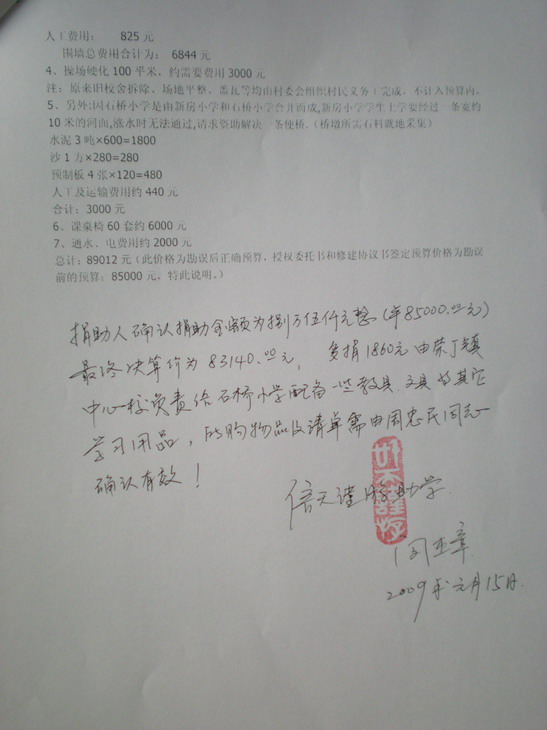 人工费用: 825 元
围墙总费用合计为: 6844 元
4、操场硬化 100 平米, 约需要费用 3000 元
注: 原来旧校舍拆除、场地平整、盖瓦等均由村委会组织村民义务工完成, 不计入预算内。
5、另外:因石桥小学是由新房小学和石桥小学合并而成,新房小学学生上学要经过一条宽约
10 米的河面,涨水时无法通过,请求资助解决一条便桥。(桥墩所需石料就地采集)
水泥 3 吨×600=1800
沙 1 方×280=280
预制板 4 张×120=480
人工及运输费用约 440 元
合计: 3000 元
6、课桌椅 60 套约 6000 元
7、通水、电费用约 2000 元
总计: 89012 元(此价格为勘误后正确预算, 授权委托书和修建协议书签定预算价格为勘误
前的预算: 85000 元, 特此说明。)
捐助人确认捐助金额为捌万伍仟元整(¥85000.00元)
最终决算价为 83140.00元, 多捐1860元由荣丁镇
中心校负责给石桥小学配备一些教具、文具及其它
学习用品, 所购物品及清单需由周忠民同志
确认有效!
信天谨游助学
2009年元月15日